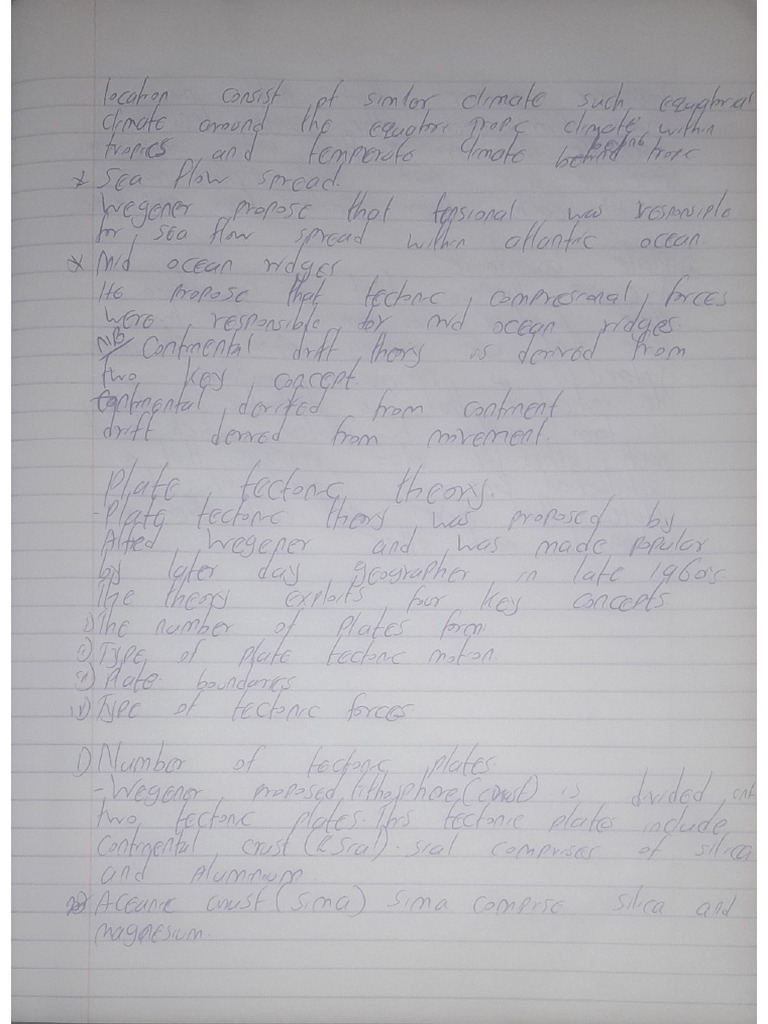 location consist of simlar climate such equatorial
climate around the equator tropic climate within
tropics and temperate climate behind tropic
* Sea flow spread.
Wegener propose that tensional was responsible
for sea flow spread within atlantic ocean.
* Mid ocean ridges
He propose that tectonic, compresional, forces
were responsible for mid ocean ridges.
NB/ Continental drift theory is derived from
two key concept.
Continental derived from continent
drift derived from movement.
Plate tectonic theory.
- Plate tectonic theory was proposed by
Alfred Wegener and was made popular
by later day geographer in late 1960's
The theory exploits four key concepts
i) The number of plates form
ii) Type of plate tectonic motion
iii) Plate boundaries
iv) Type of tectonic forces
i) Number of tectonic plates.
- Wegener proposed lithosphere (crust) is divided
two tectonic plates. This tectonic plates include
Continental crust (Sial). sial comprises of silica
and Aluminium.
Aceanic crust (sima) sima comprise silica and
magnesium.